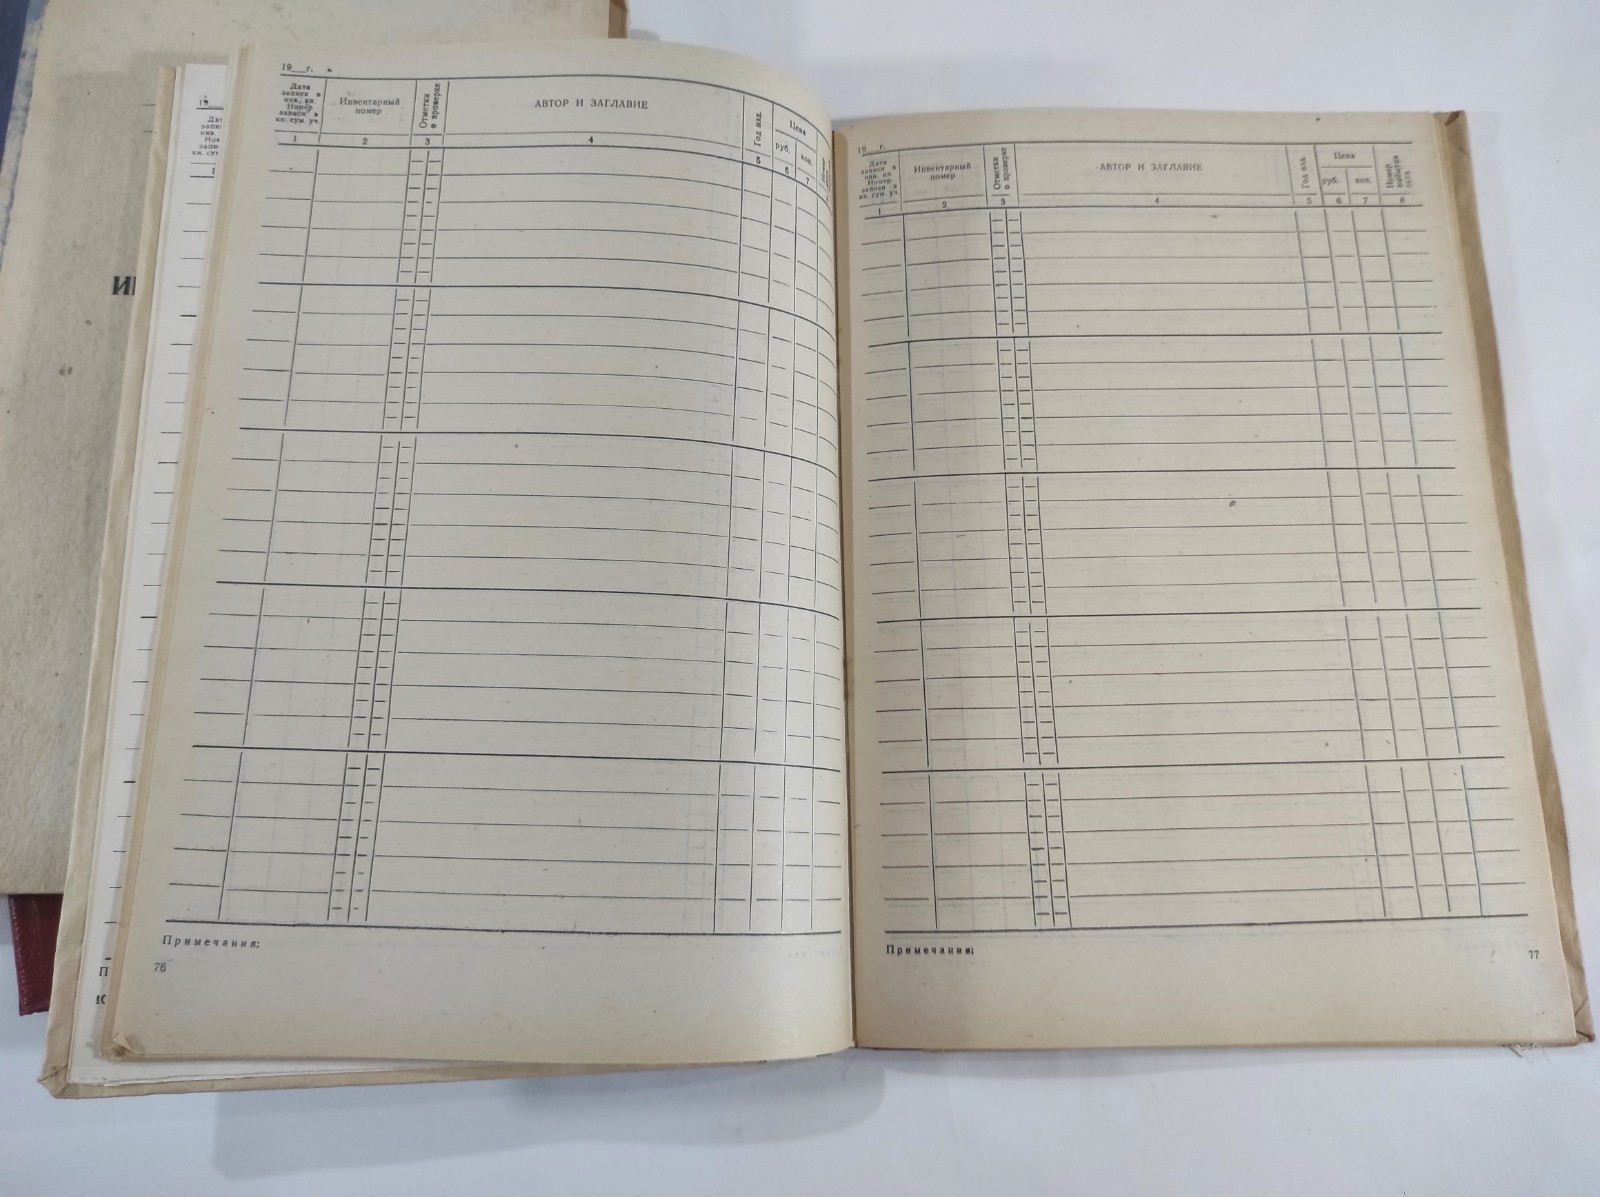 19___г.
Дата
записи в
инв. кн.
Номер
записи в
кн. сум. уч.
Инвентарный
номер
Отметки
о проверке
АВТОР И ЗАГЛАВИЕ
Год изд.
Цена
руб.
коп.
1
2
3
4
5
6
7
Примечания:
76
19___г.
Дата
записи в
инв. кн.
Номер
записи в
кн. сум. уч.
Инвентарный
номер
Отметки
о проверке
АВТОР И ЗАГЛАВИЕ
Год изд.
Цена
руб.
коп.
Номер
выбытия
акта
1
2
3
4
5
6
7
8
Примечания:
77